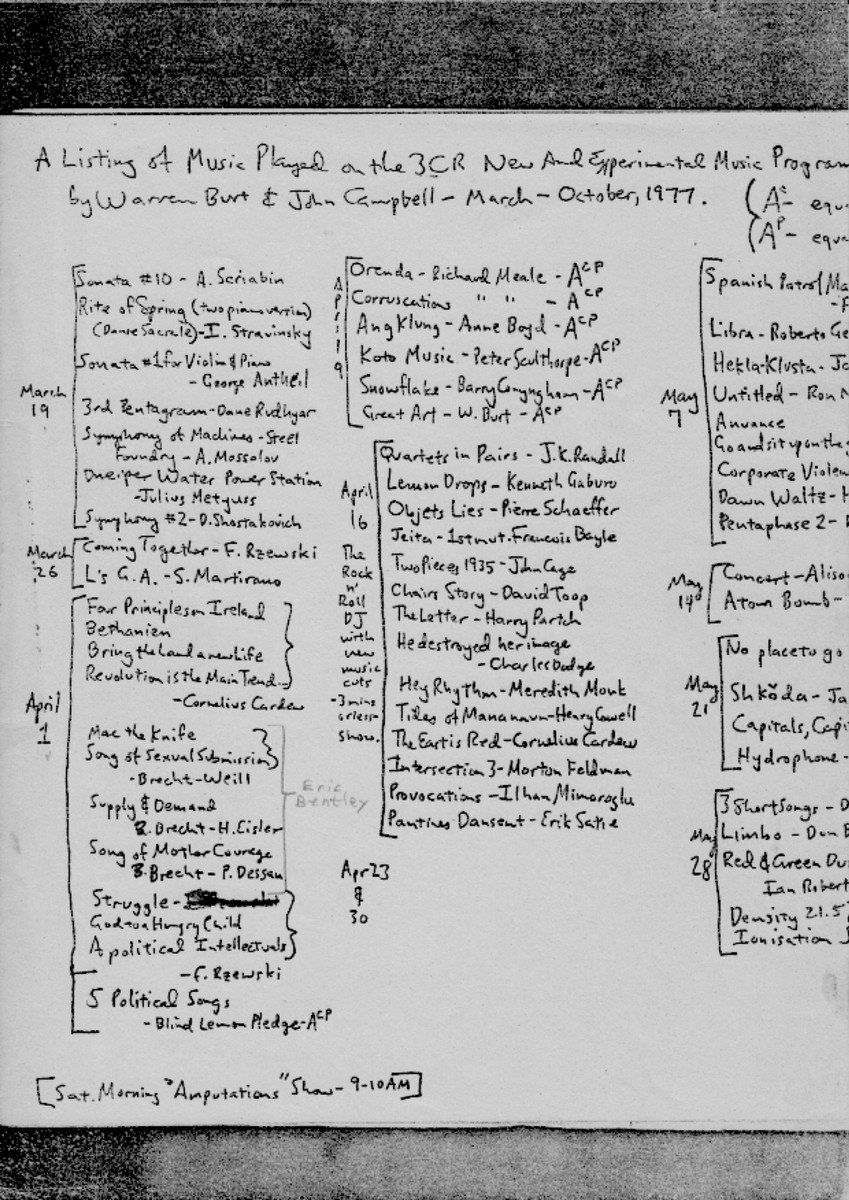 A Listing of Music Played on the 3CR New And Experimental Music Program
by Warren Burt & John Campbell - March - October, 1977.
(A^c - equ
(A^P - equa
March 19
Sonata #10 - A. Scriabin
Rite of Spring (two piano version)
(Danse Sacrale) - I. Stravinsky
Sonata #1 for Violin & Piano
- George Antheil
3rd Pentagram - Dane Rudhyar
Symphony of Machines - Steel
Foundry - A. Mossolov
Dneiper Water Power Station
- Julius Metguss
Symphony #2 - D. Shostakovich
March 26
Coming Together - F. Rzewski
L's G.A. - S. Martirano
April 1
Four Principles on Ireland
Bethanien
Bring the Land a new Life
Revolution is the Main Trend...
- Cornelius Cardew
Mac the Knife
Song of Sexual Submission
- Brecht - Weill
Supply & Demand
B. Brecht - H. Eisler
Song of Mother Courage
B. Brecht - P. Dessau
Eric
Bentley
Struggle -
God to a Hungry Child
Apolitical Intellectuals
- F. Rzewski
5 Political Songs
- Blind Lemon Pledge - A^CP
[Sat. Morning "Amputations" Show - 9-10AM]
April 9
Orenda - Richard Meale - A^CP
Corruscations " " - A^CP
AngKlung - Anne Boyd - A^CP
Koto Music - Peter Sculthorpe - A^CP
Snowflake - Barry Conyngham - A^CP
Great Art - W. Burt - A^CP
April
16
The
Rock
n'
Roll
DJ
with
new
music
cuts
- 3 mins
or less -
show.
Quartets in Pairs - J.K. Randall
Lemon Drops - Kenneth Gaburo
Objets Lies - Pierre Schaeffer
Jeita - 1st mvt. Francois Bayle
Two Pieces 1935 - John Cage
Chairs Story - David Toop
The Letter - Harry Partch
He destroyed her image
- Charles Dodge
Hey Rhythm - Meredith Monk
Tides of Manaunaun - Henry Cowell
The East is Red - Cornelius Cardew
Intersection 3 - Morton Feldman
Provocations - Ilhan Mimaroglu
Pantines Dansent - Erik Satie
Apr 23
&
30
May
7
Spanish Patrol (Ma
Libra - Roberto Ge
Hekla-Klusta - Jo
Untitled - Ron N
Anuance
Go and sit upon the g
Corporate Violen
Dawn Waltz - H
Pentaphase 2 -
May
14
Concert - Aliso
Atom Bomb -
May
21
No place to go
Shkŏda - Ja
Capitals, Capi
Hydrophone -
May
28
3 Short Songs - D
Limbo - Don B
Red & Green Du
Ian Robert
Density 21.5
Ionisation